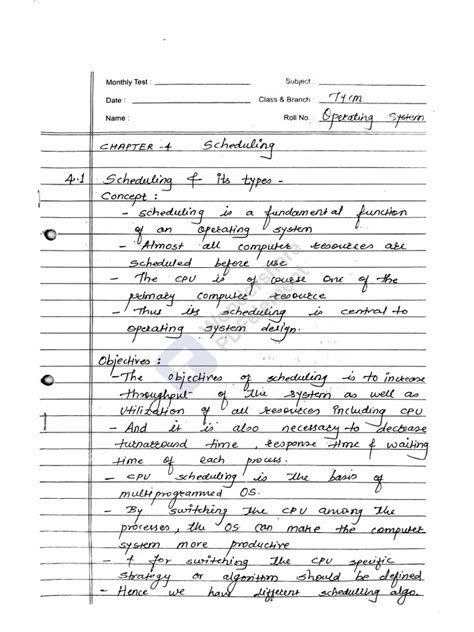 Monthly Test : Subject :
Date : Class & Branch : TyCM
Name : Roll No. Operating System
CHAPTER -4 Scheduling
4.1 Scheduling & its types -
Concept :
- scheduling is a fundamental function
of an operating system
- Almost all computer resources are
scheduled before use
- The CPU is of course one of the
primary computer resource
- Thus its scheduling is central to
operating system design.
Objectives :
- The objectives of scheduling is to increase
throughput of the system as well as
utilization of all resources including CPU
- And it is also necessary to decrease
turnaround time, response time & waiting
time of each process.
- CPU scheduling is the basis of
multiprogrammed OS.
- By switching the CPU among the
processes, the OS can make the computer
system more productive
- & for switching the CPU specific
strategy or algorithm should be defined
- Hence we have different scheduling algo.
Wondershare
PDFelement